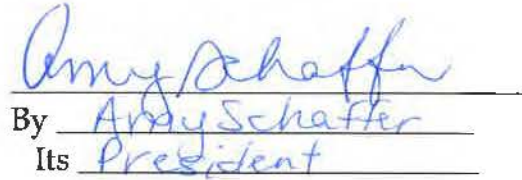 Amy Schaffer
By Amy Schaffer
Its President